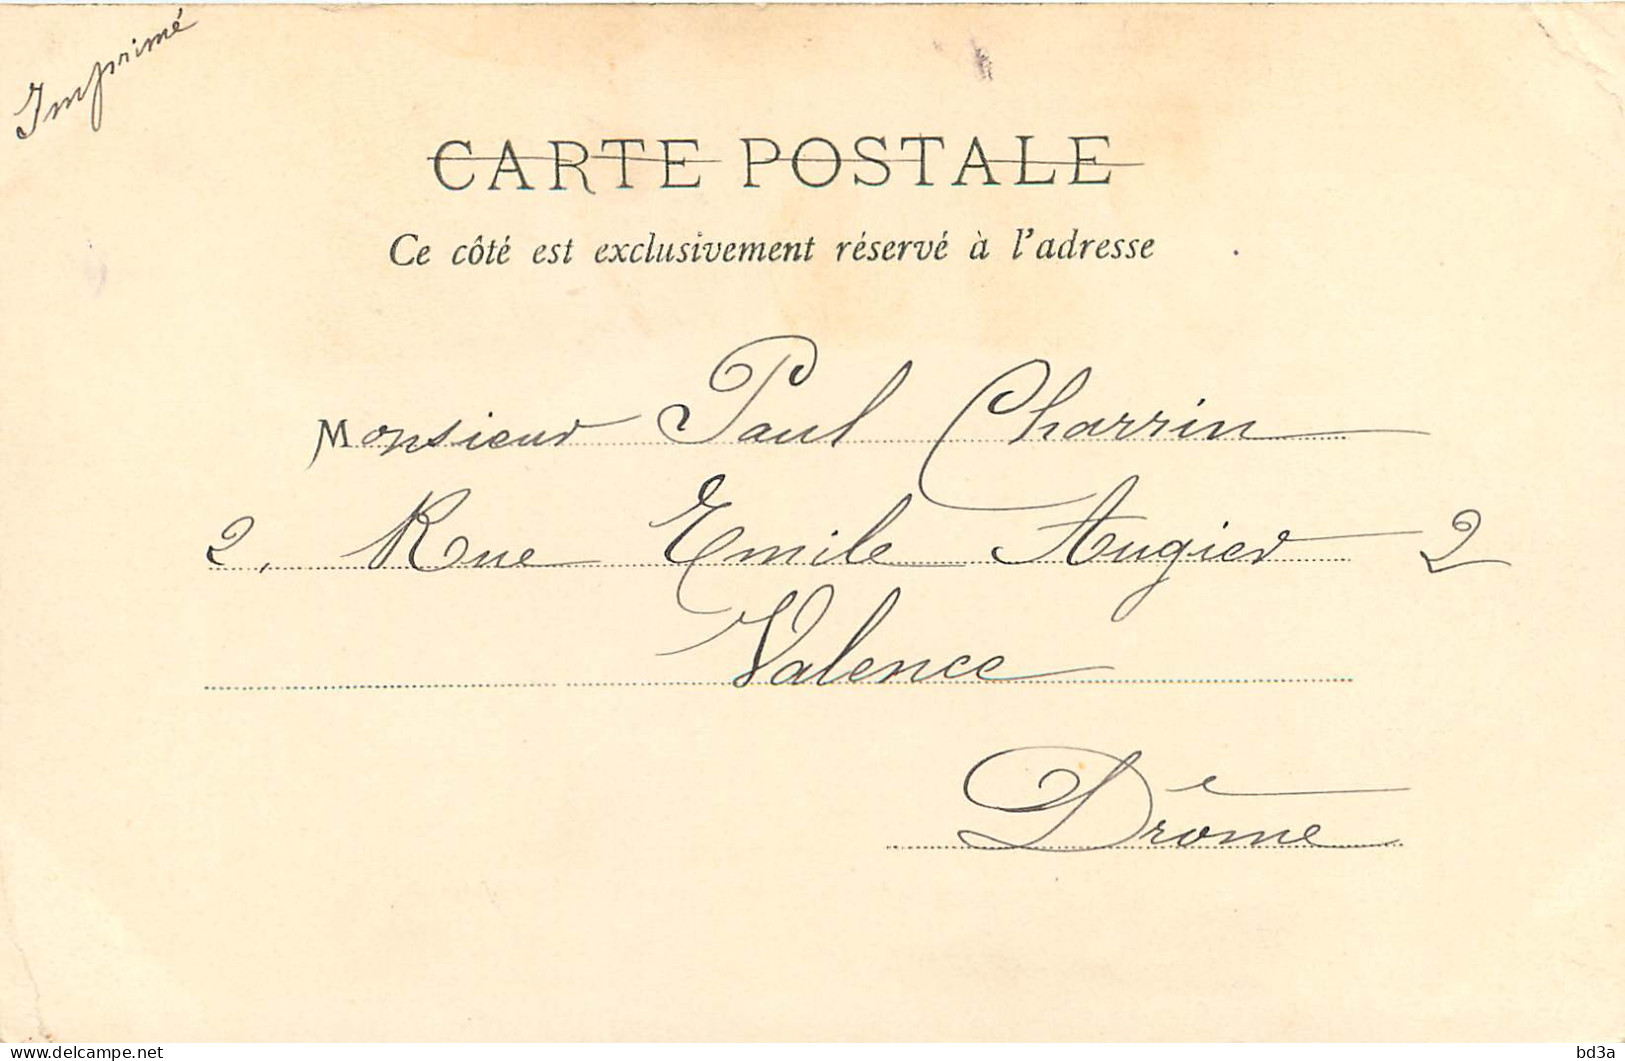 Imprimé
CARTE POSTALE
Ce côté est exclusivement réservé à l'adresse
Monsieur Paul Charrin
2, Rue Emile Augier 2
Valence
Drôme
delcampe.net
bd3a